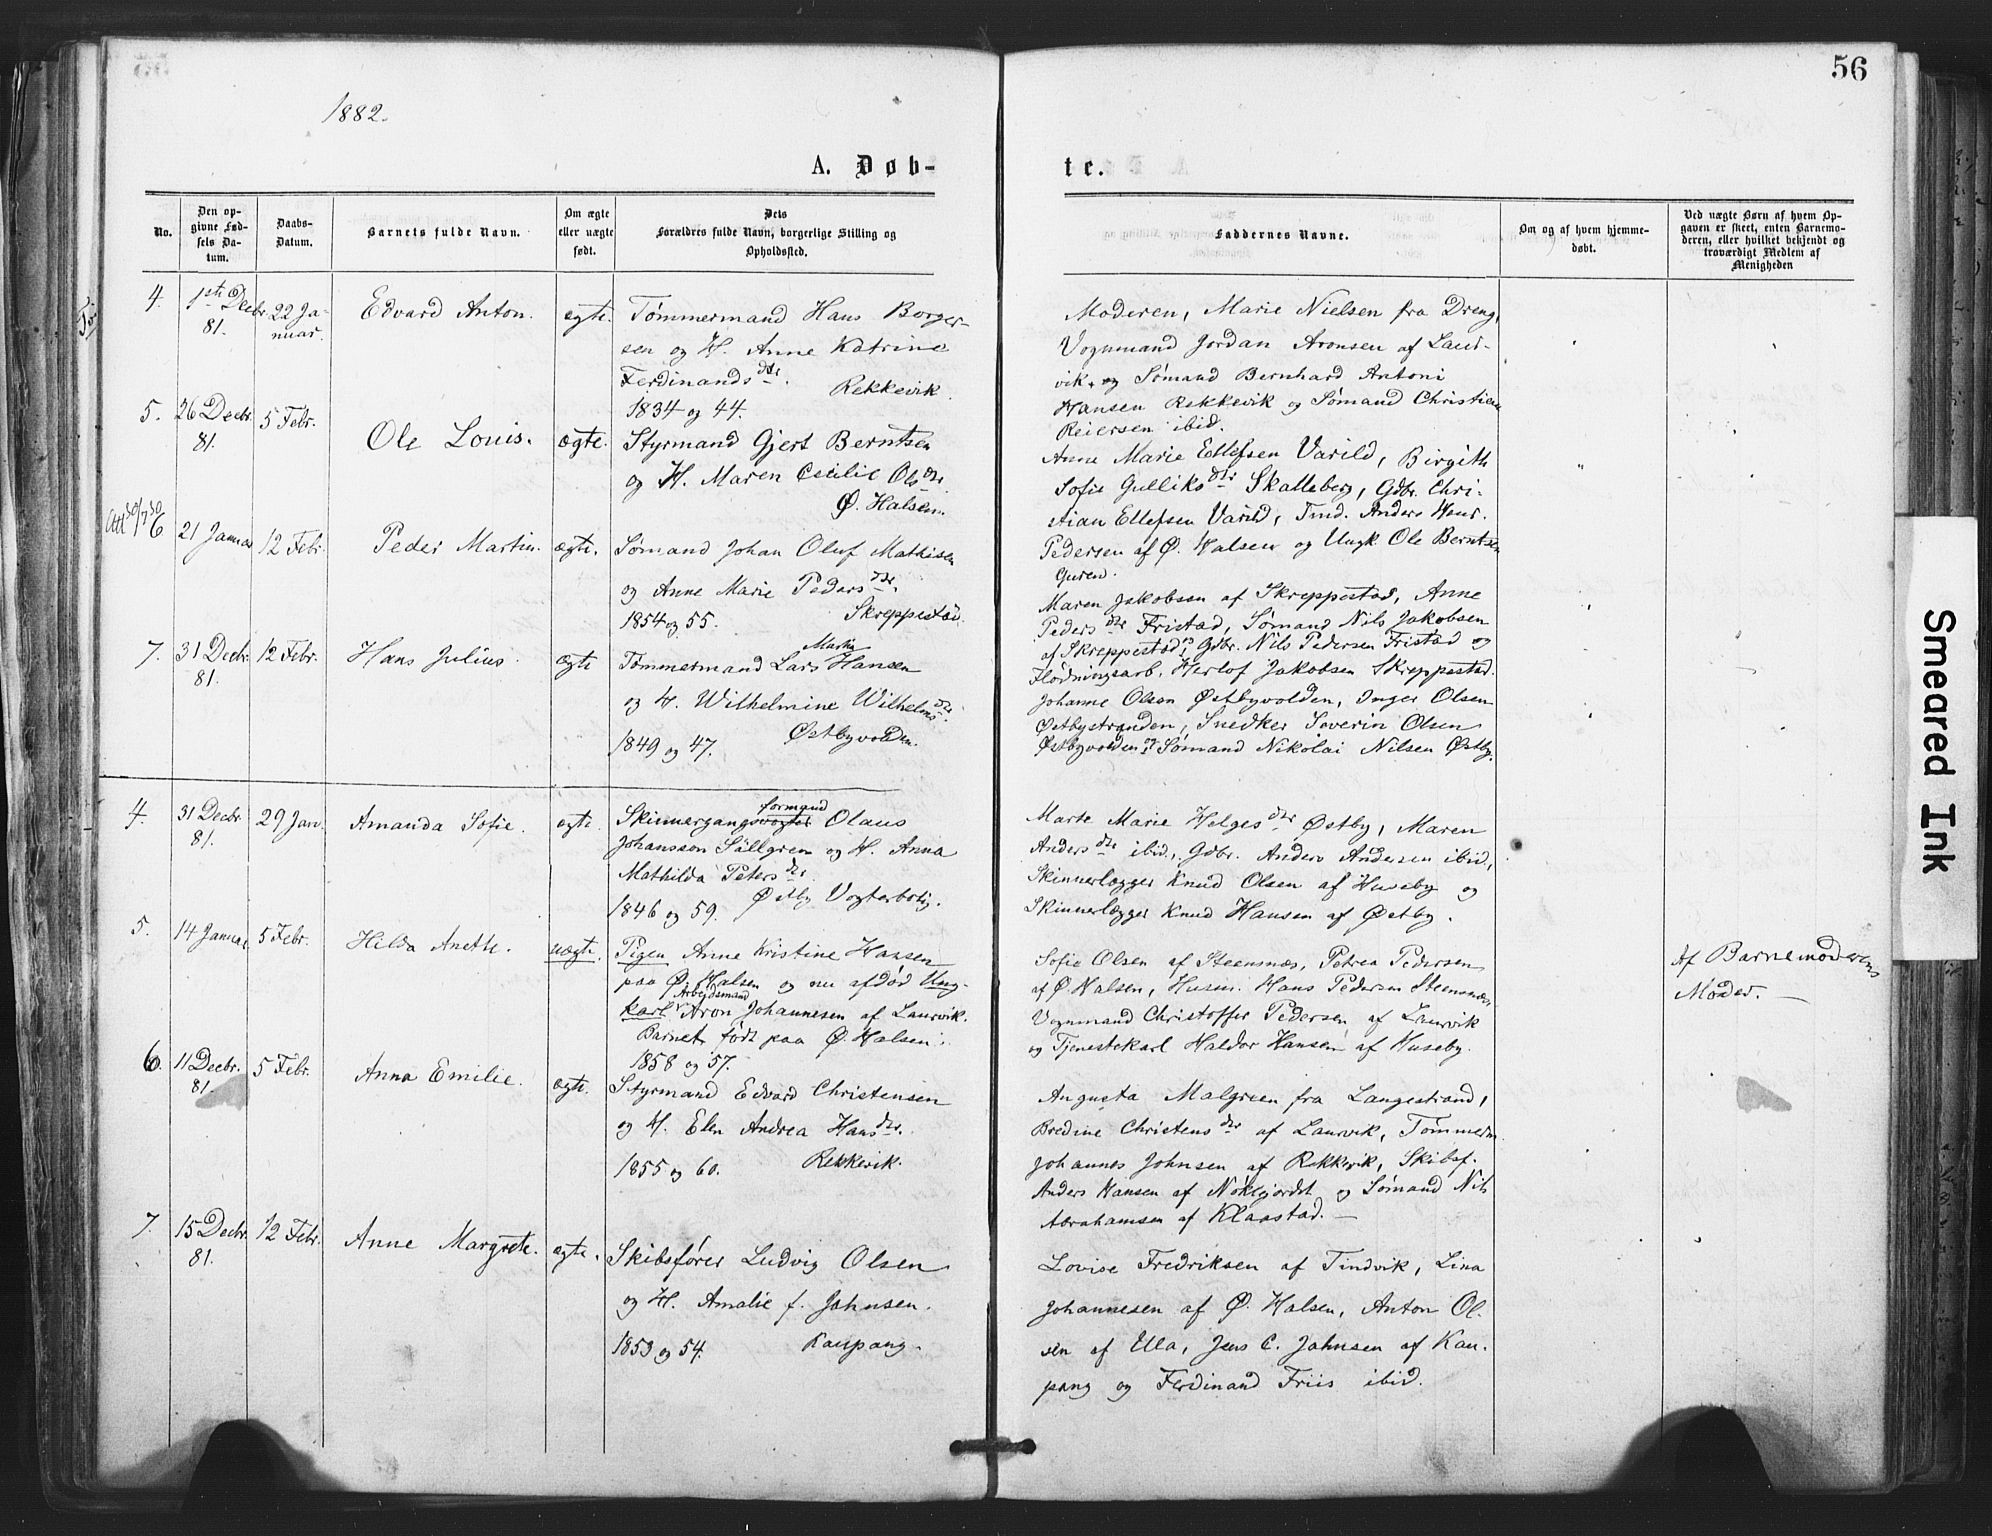 56
1882.
A. Døb-
te.
No.
Den op-
givne Fød-
sels Da-
tum.
Daabs-
Datum.
Barnets fulde Navn.
Om ægte
eller uægte
født.
Dets
Forældres fulde Navn, borgerlige Stilling og
Opholdssted.
Faddernes Navne.
Om og af hvem hjemme-
døbt.
Ved uægte Børn af hvem Op-
gaven er skeet, enten Barnemo-
deren, eller hvilket bekjendt og
troværdigt Medlem af
Menigheden
4. 1ste Decbr. 81. 22 Ja-
nuar.
Edvard Anton. ægte.
Tømmermand Hans Borger-
sen og H. Anne Katrine
Ferdinandsdtr. Rekkevik.
1834 og 44.
Moderen, Marie Nielsen fra Dreng,
Vognmand Jordan Aronsen af Laur-
vik, og Sømand Bernhard Antoni
Hansen Rekkevik og Sømand Christian
Reiersen ibid.
5. 26 Decbr. 81. 5 Febr.
Ole Louis. ægte.
Styrmand Gjert Berntsen
og H. Maren Cecilie Olsdtr.
Ø. Halsen.
Anne Marie Ellefsen Varild, Birgith
Sofie Gulliksdtr Skalleberg, Gdbr. Chri-
stian Ellefsen Varild, Tmd. Anders Henr.
Pedersen af Ø. Halsen og Ungk. Ole Berntsen
Guren.
Att 30/7 30
6 21 Januar 12 Febr.
Peder Martin. ægte.
Sømand Johan Oluf Mathisen
og Anne Marie Pedersdtr.
1854 og 55. Skreppestad.
Maren Jakobsen af Skreppestad, Anne
Pedersdtr Fristad, Sømand Nils Jakobsen
af Skreppestad, Gdbr. Nils Pedersen Fristad og
Flødningsarb. Herlof Jakobsen Skreppestad.
7. 31 Decbr. 81. 12 Febr.
Hans Julius. ægte
Tømmermand Lars Martin Hansen
og H. Wilhelmine Wilhelmsdtr.
1849 og 47. Østbyvolden.
Johanne Olsen Østbyvolden, Inger Olsen
Østbystranden, Snedker Severin Olsen
Østbyvolden, og Sømand Nikolai Nilsen Østby.
4. 31 Decbr. 81. 29 Jan.
Amanda Sofie. ægte.
formand
Skinnergangsvogter Olaus
Johansson Sällgren og H. Anna
Mathilda Petersdtr.
1846 og 59. Østby Vogterbolig.
Marte Marie Helgesdtr Østby, Maren
Andersdtr ibid., Gdbr. Anders Andersen ibid,
Skinnerlægger Knud Olsen af Huseby og
Skinnerlægger Knud Hansen af Østby.
5. 14 Januar 5 Febr.
Hilda Anette. uægte.
Pigen Anne Kristine Hansen
paa Ø. Halsen og nu afdød Ung-
karl Arbejdsmand Aron Johannesen af Laurvik.
Barnet født paa Ø. Halsen.
1858 og 57.
Sofie Olsen af Steensnæs, Petrea Pedersen
af Ø. Halsen, Husm. Hans Pedersen Steensnæs,
Vognmand Christoffer Pedersen af Laurvik
og Tjenestekarl Haldor Hansen af Huseby.
Af Barnemoderens
Moder. —
6. 11 Decbr. 81. 5 Febr.
Anna Emilie. ægte.
Styrmand Edvard Christensen
og H. Elen Andrea Hansdtr.
1855 og 60. Rekkevik.
Augusta Malgreen fra Langestrand,
Bredine Christensdtr af Laurvik, Tømmerm.
Johannes Johnsen af Rekkevik, Skibsf.
Anders Hansen af Nøklgjordet og Sømand Nils
Abrahamsen af Klaastad. —
7. 15 Decbr. 81. 12 Febr.
Anne Margrete. ægte.
Skibsfører Ludvig Olsen
og H. Amalie f. Johnsen.
1853 og 54. Kaupang.
Lovise Fredriksen af Tindvik, Lina
Johannesen af Ø. Halsen, Anton Ol-
sen af Ula, Jens C. Johnsen af Kau-
pang og Ferdinand Friis ibid.
Smeared Ink